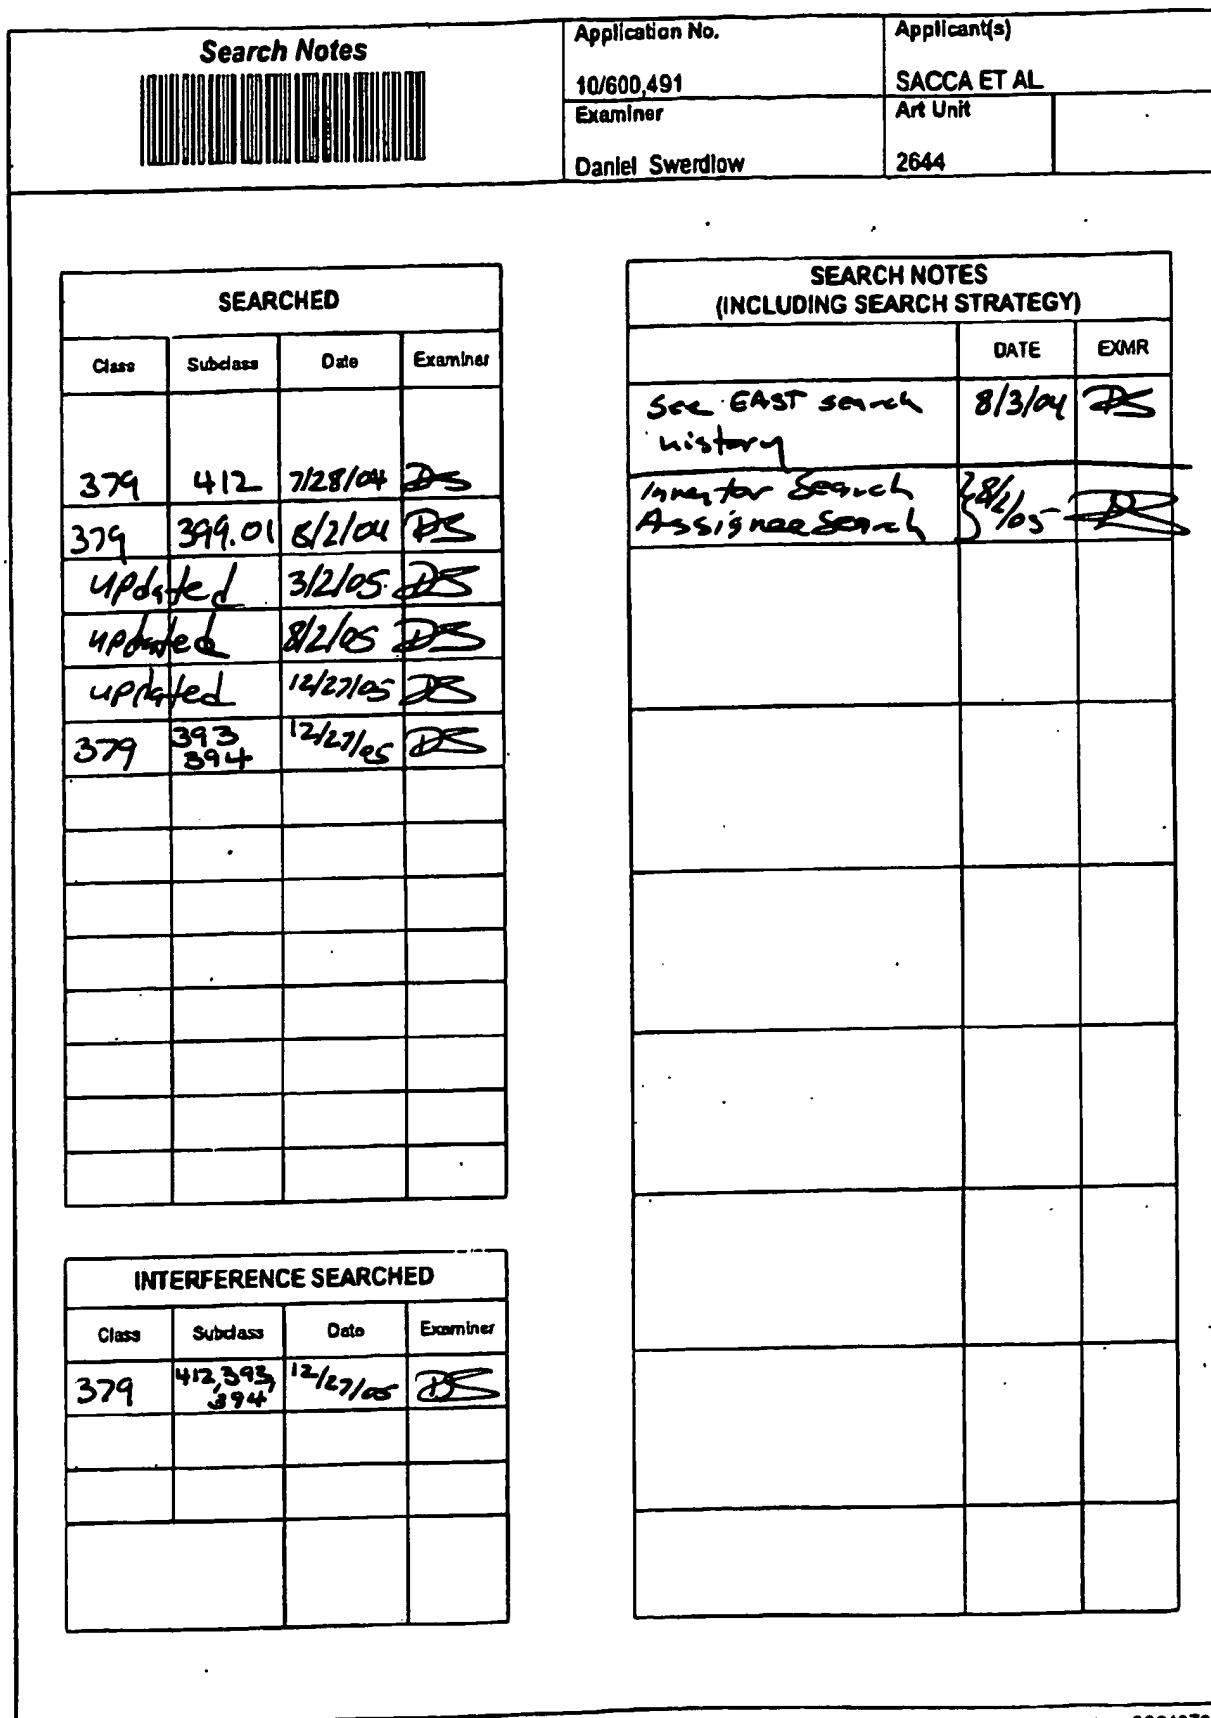 Search Notes
Application No.
10/600,491
Applicant(s)
SACCA ET AL.
Examiner
Daniel Swerdlow
Art Unit
2644
SEARCHED
Class Subclass Date Examiner
379 412 7/28/04 DS
379 399.01 8/2/04 DS
updated 3/2/05 DS
updated 8/2/05 DS
updated 12/27/05 DS
379 393 394 12/27/05 DS
INTERFERENCE SEARCHED
Class Subclass Date Examiner
379 412,393, 394 12/27/05 DS
SEARCH NOTES
(INCLUDING SEARCH STRATEGY)
DATE EXMR
See EAST search 8/3/04 DS
history
Inventor Search 8/2/05 DS
Assignee Search